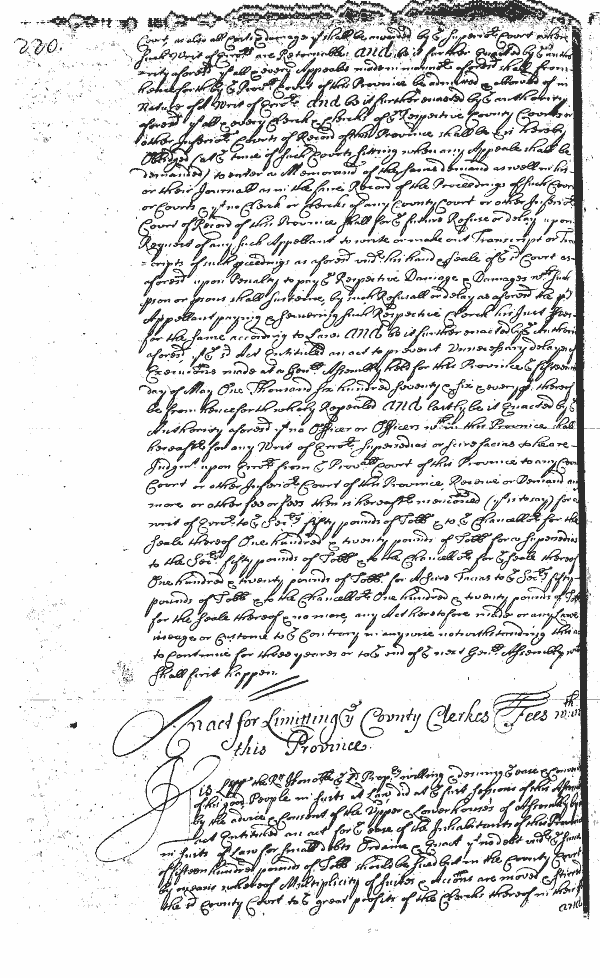 220.
Court, as also all Costs & damage yt shall be awarded by ye Superior Court when
such Writ of Error are Returnable. And be it further Enacted by ye autho
rity aforesd yt all & every Appeale made in manner aforesd shall from
henceforth by ye Provll Court of this Province be admitted & allowed of in
Nature of a Writ of Error. And be it further enacted by ye authority
aforesd yt all & every Clerk & Clerks of ye respective County Courts or
other Inferior Courts of Record of this Province shall be & is hereby
Obliged (at ye time of such Courts sitting when any Appeale shall be
demanded) to enter a Memorand of the same demand as well in his
or their Journall as in the faire Record of the Proceedings of such Court
or Courts, & yt no Clerk or Clerks of any County Court or other Inferior
Court of Record of this Province shall for ye future Refuse or delay upon
Request of any such Appellant to write or make out Transcript or Tran
scripts of such proceedings as aforesd undr his hand & seale of ye sd Court as
aforesd upon Penalty to pay ye Respective Damage & Damages wch such
pson or psons shall Susteine, by such Refusall or delay as aforesd the sd
Appellant paying & securing such Respective Clerk his Just Fees
for the same according to Law. And be it further enacted by ye Authority
aforesd yt ye sd Act Entituled an act to prevent Unnecessary delayes of
Executions made at a Genll Assembly held for this Province ye fifteenth
day of May One Thousand six hundred Seventy & Six & every pt thereof
be from henceforth wholy Repealed And lastly be it Enacted by ye
Authority aforesd yt no Officer or Officers wthin this Province shall
hereafter for any Writ of Error, Supersedias or scire facias to heare
Judgmt upon Error from ye Provll Court of this Province to any County
Court or other Inferior Court of this Province, Receive or Demand any
more or other fee or fees then is hereafter mencioned (yt is to say) for a
writ of Error to ye Secry fifty pounds of Tobb & to ye Chancellor for the
Seale thereof One hundred & twenty pounds of Tobb for a Supersedias
to the Secry fifty pounds of Tobb & to the Chancellor for ye Seale thereof
One hundred & twenty pounds of Tobb for A Scire Facias to ye Secry fifty
pounds of Tobb & to the Chancellor One hundred & twenty pounds of Tobb
for the Seale thereof & no more, any Act heretofore made or any Law
useage or Custome to ye Contrary in any wise notwithstanding this act
to Continue for three yeares or to ye End of ye next Genll Assembly wch
shall first happen.
An act for Limitting ye County Clerkes Fees wthin
this Province.
His Lspp the Rt Honoble ye Ld Propry willing & desiring ye ease &
of the good People in suits at Law did at ye first sessions of this Assembly
by the advice & Consent of the Upper & Lower houses of Assembly by
act Entituled an act for ye ease of the Inhabitants of this Province
in suits of Law for small debts Ordaine & Enact yt no debt undr ye summe
of fifteen hundred pounds of Tobb should be sued but in the County Court
by meanes whereof Multiplicity of suites & accons are moved & stirred
the sd County Court to ye great profits of the Clerks thereof in their
and